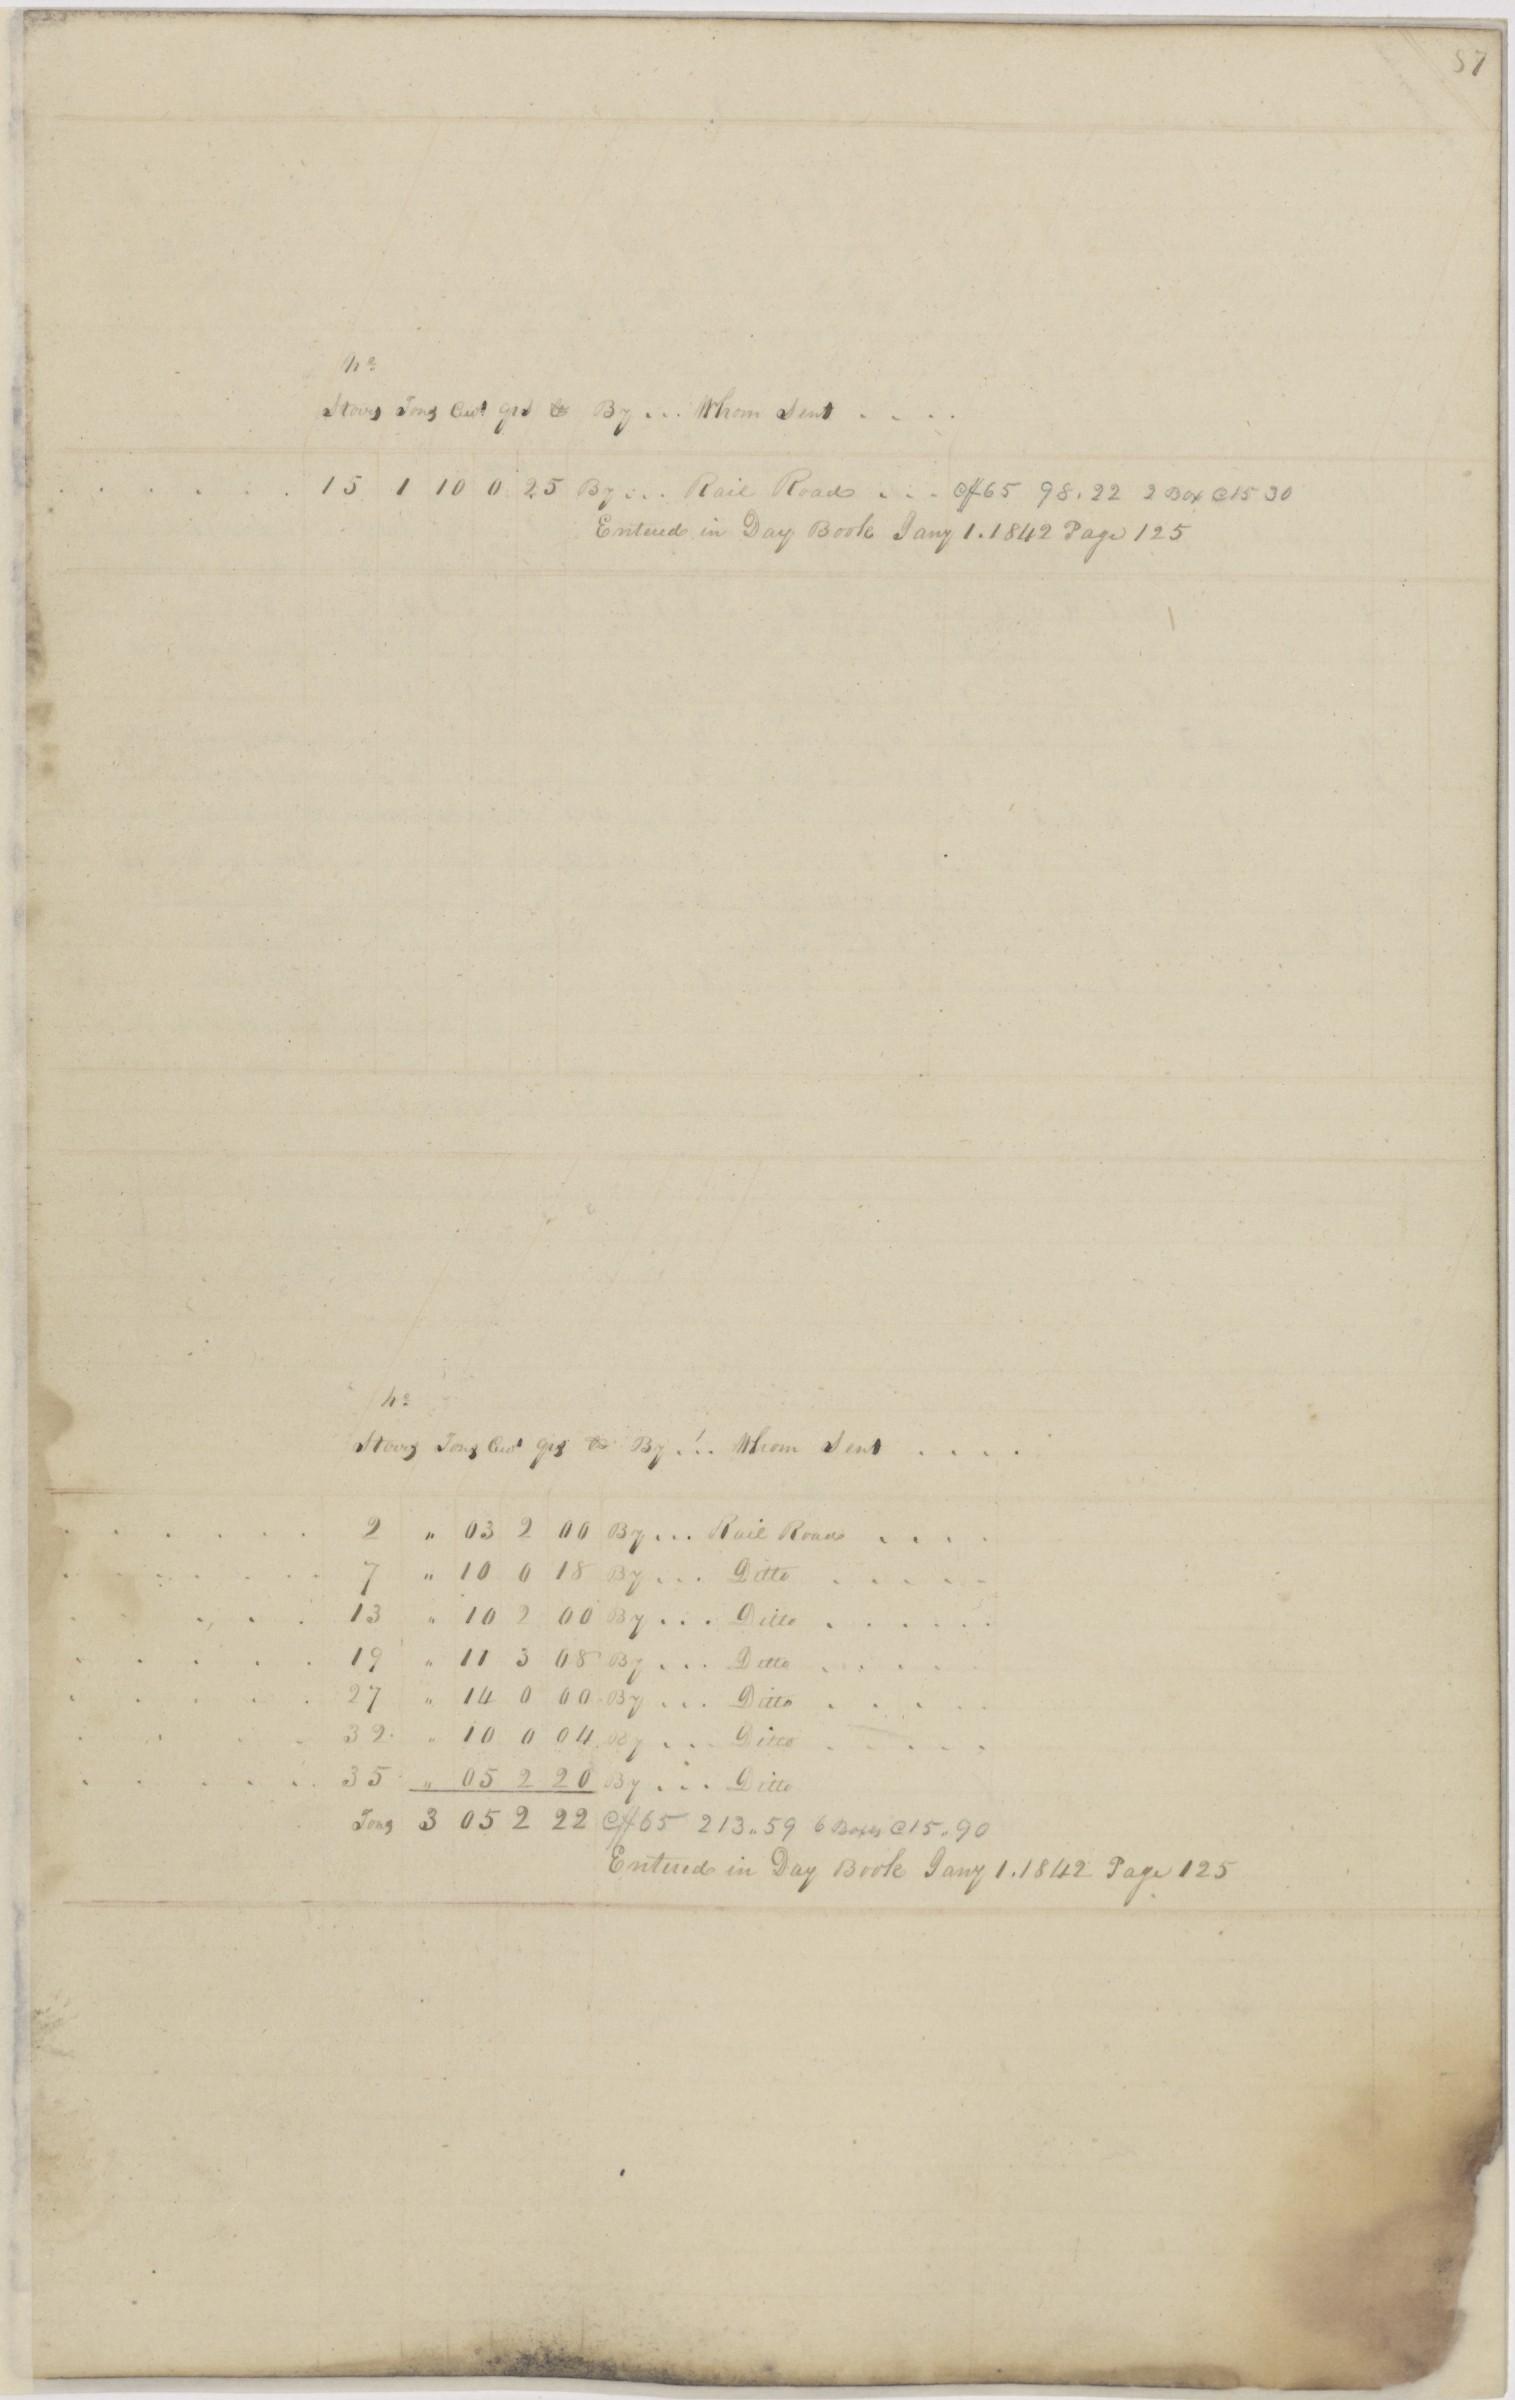 87
No
Stoves Tons Cwt qrs lb By ... Whom Sent . . . .
. . . . . . 15 1 10 0 25 By ... Rail Roads . . . @ $65 98.22 2 Box @15 30
Entered in Day Book Jany 1. 1842 Page 125
No
Stoves Tons Cwt qrs lb By ... Whom Sent . . . .
. . . . . . 2 " 03 2 00 By ... Rail Roads . . . .
. . . . . . 7 " 10 0 18 By ... Ditto . . . . .
. . . . 13 " 10 2 00 By ... Ditto . . . . . .
. . . . . 19 " 11 3 08 By ... Ditto . . . . .
. . . . . 27 " 14 0 00 By ... Ditto . . . . .
. . . . 32 " 10 0 04 By ... Ditto . . . . .
. . . . . . 35 " 05 2 20 By ... Ditto
Tons 3 05 2 22 @ $65 213.. 59 6 Boxes @15.. 90
Entered in Day Book Jany 1. 1842 Page 125